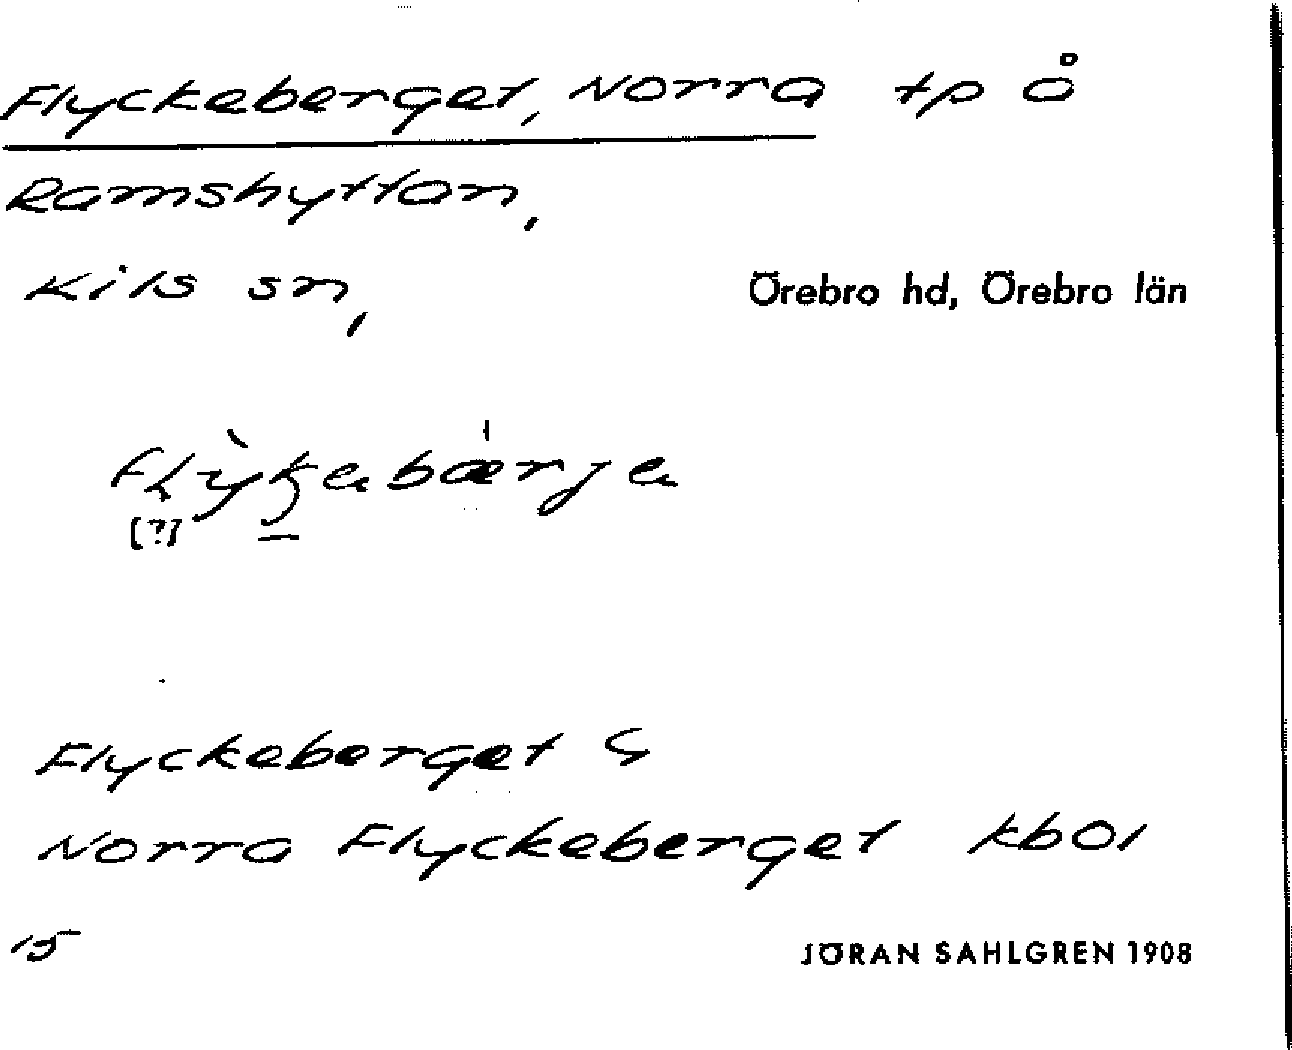 Flyckeberget, Norra tp å
Ramshyttan,
Kils sn, Örebro hd, Örebro län
[?]
Flyckeberget G
Norra Flyckeberget kbol
15 JÖRAN SAHLGREN 1908